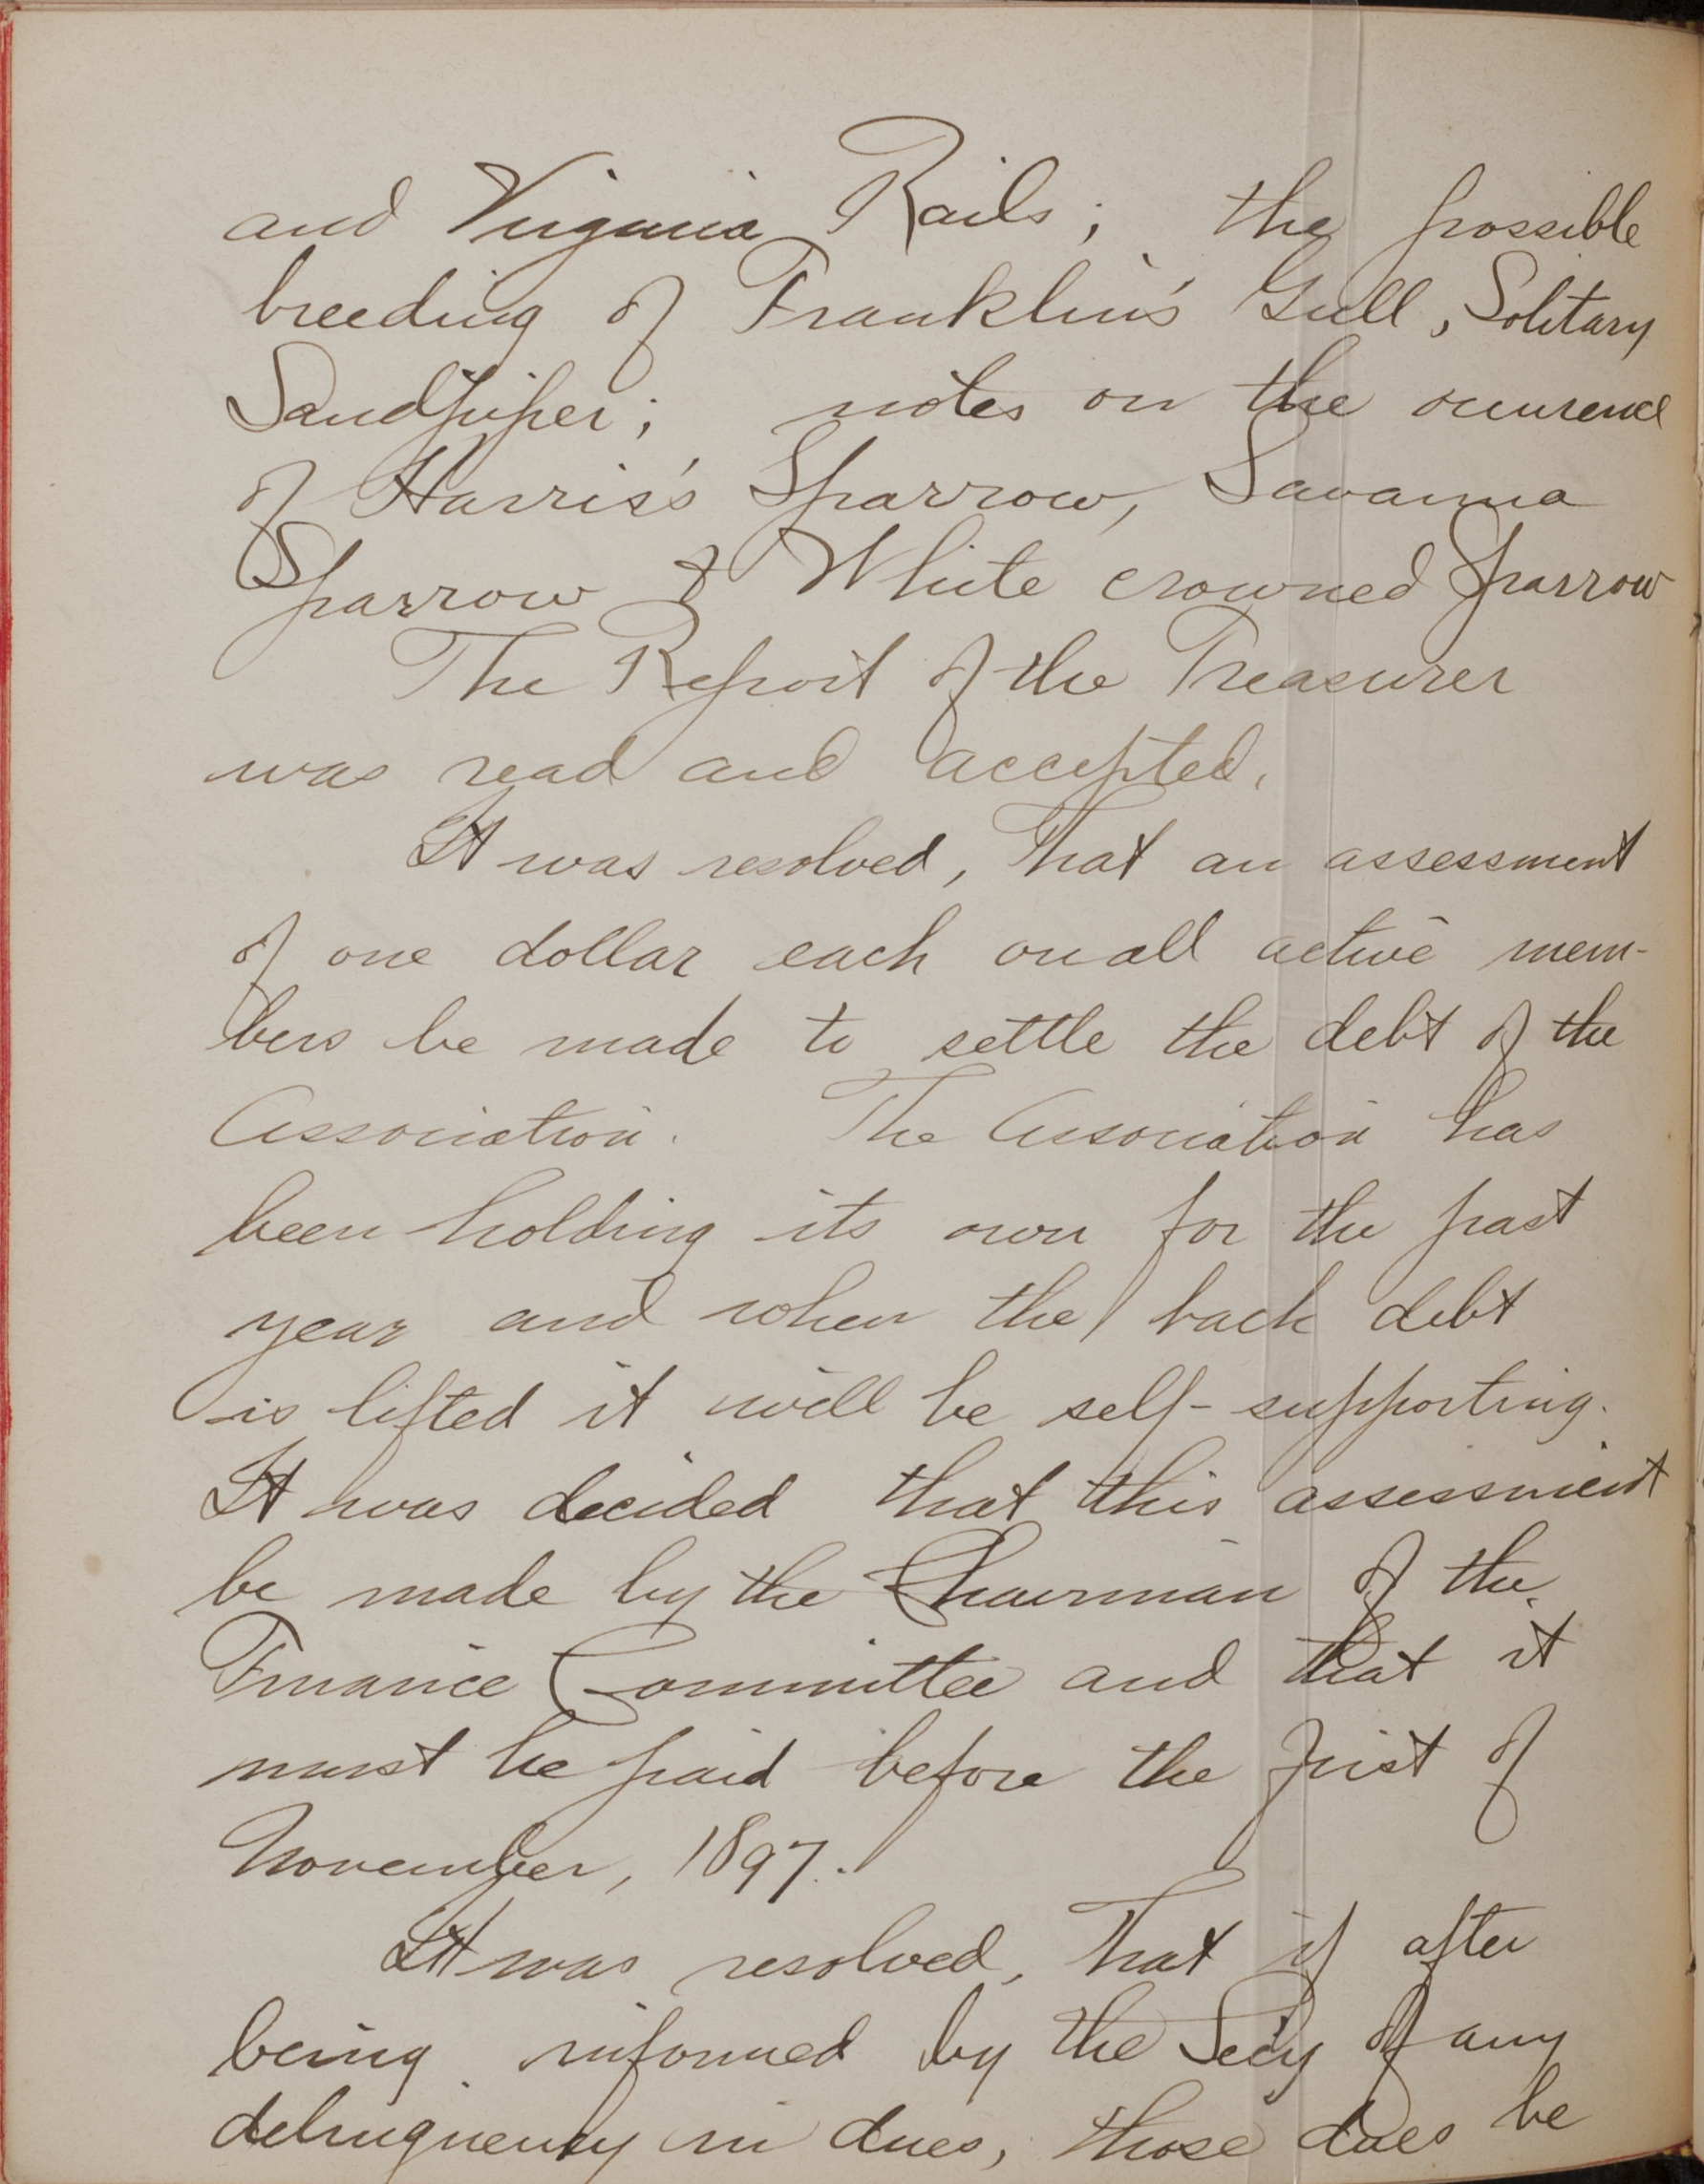 and Virginia Rails; the possible
breeding of Franklin's Gull, Solitary
Sandpiper; notes on the occurence
of Harris's Sparrow, Savanna
Sparrow & White crowned Sparrow
The Report of the Treasurer
was read and accepted.
It was resolved, That an assessment
of one dollar each on all active mem-
bers be made to settle the debt of the
Association. The Association has
been holding its own for the past
year and when the back debt
is lifted it will be self-supporting.
It was decided that this assessment
be made by the Chairman of the
Finance Committee and that it
must be paid before the first of
November, 1897.
It was resolved, That if after
being informed by the Secy of any
delinquency in dues, those dues be